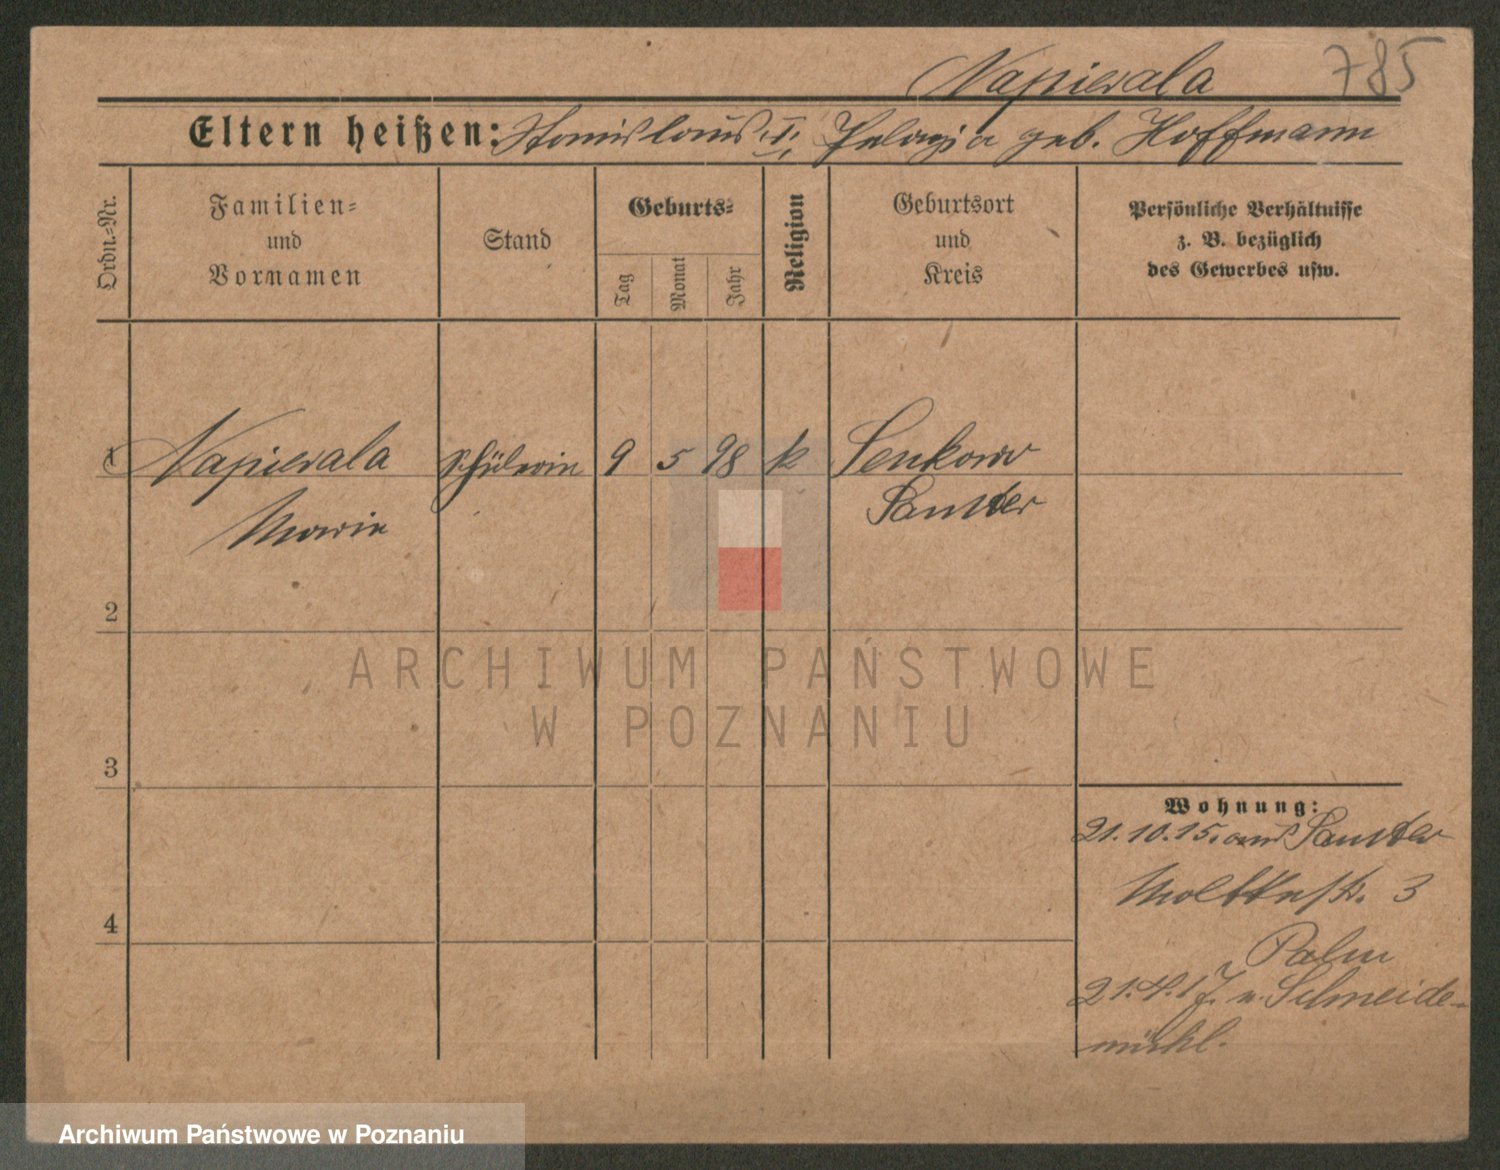 Napierala 785
Eltern heißen: Stanislaus u. Pelagia geb. Hoffmann
Ordn.-Nr.
Familien-
und
Vornamen
Stand
Geburts-
Tag
Monat
Jahr
Religion
Geburtsort
und
Kreis
Persönliche Verhältnisse
z. B. bezüglich
des Gewerbes usw.
1 Napierala Schülerin 9 5 98 k Senkowo
Marie Samter
2
ARCHIWUM PAŃSTWOWE
W POZNANIU
3
Wohnung:
21.10.15. aus Samter
Moltkestr. 3
4
Palm
21.4.17. n. Schneide-
mühl.
Archiwum Państwowe w Poznaniu